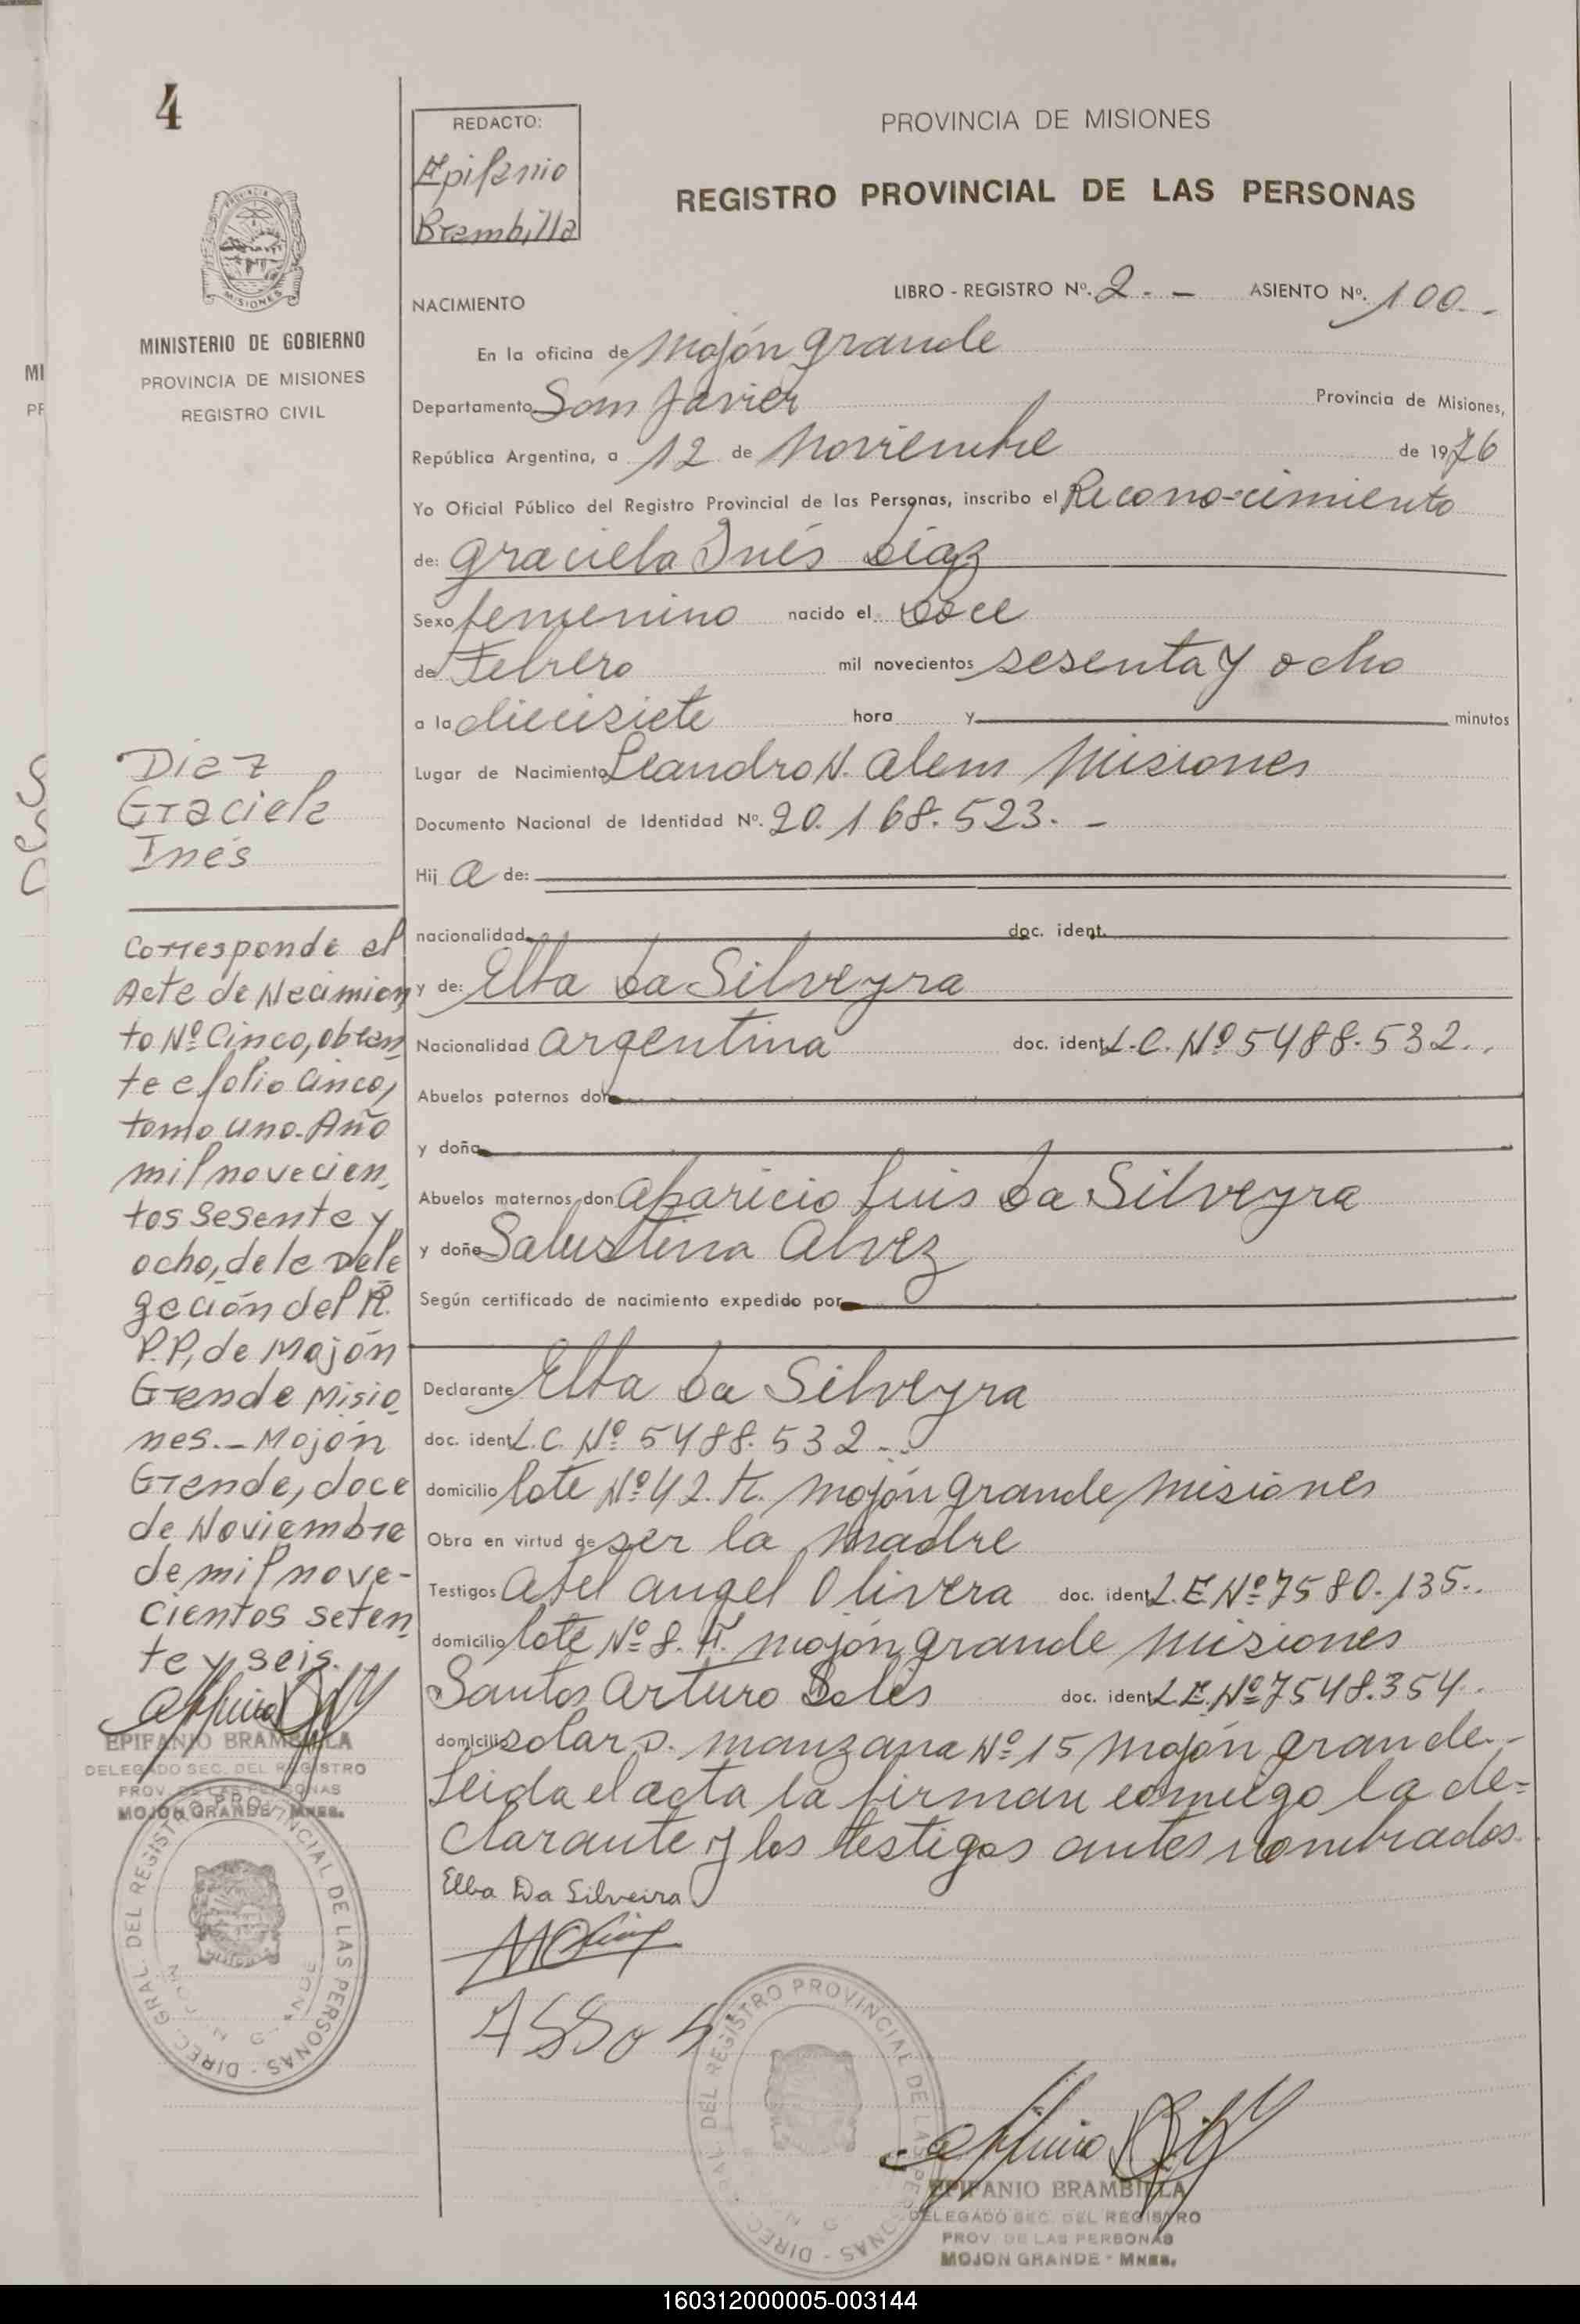 4
REDACTO:
Epifanio
Brambilla
PROVINCIA DE MISIONES
REGISTRO PROVINCIAL DE LAS PERSONAS
MISIONES
MINISTERIO DE GOBIERNO
PROVINCIA DE MISIONES
REGISTRO CIVIL
NACIMIENTO
LIBRO - REGISTRO Nº. 2.- - ASIENTO Nº. 100.-
En la oficina de Mojón grande
Departamento San Javier Provincia de Misiones,
República Argentina, a 12 de Noviembre de 1976
Yo Oficial Público del Registro Provincial de las Personas, inscribo el Recono-cimiento
de: Graciela Inés Díaz
Sexo femenino nacido el Doce
de Febrero mil novecientos sesenta y ocho
a la diecisiete hora y minutos
Lugar de Nacimiento Leandro N. Alem Misiones
Documento Nacional de Identidad Nº. 20.168.523.-
Hij a de:
nacionalidad doc. ident.
y de: Elba Da Silveyra
Nacionalidad argentina doc. ident L.C. Nº 5488.532..
Abuelos paternos don
y doña
Abuelos maternos don Aparicio Luis Da Silveyra
y doña Salustina Alvez
Según certificado de nacimiento expedido por
Declarante Elba Da Silveyra
doc. ident L.C. Nº 5488.532..
domicilio lote Nº 42. K. Mojón grande Misiones
Obra en virtud de ser la madre
Testigos Abel Angel Olivera doc. ident L.E Nº 7580.135..
domicilio lote Nº 8. Mojón grande Misiones
Santos Arturo Solis doc. ident L.E. Nº 7548.354.
domicilio solar D. manzana Nº 15 Mojón grande.-
Leida el acta la firman conmigo la de=
clarante y los testigos antes nombrados.
Elba Da Silveira
Díaz
Graciela
Inés
Corresponde al
Acta de Nacimien
to Nº Cinco, obran
te a folio Cinco,
tomo uno. Año
mil novecien
tos sesenta y
ocho, de la Dele
gación del R.
P.P, de Mojón
Grande Misio
nes.- Mojón
Grande, doce
de Noviembre
de mil nove-
cientos seten
ta y seis.
EPIFANIO BRAMBILLA
DELEGADO SEC. DEL REGISTRO
PROV. DE LAS PERSONAS
MOJON GRANDE - MNES.
DIREC. GRAL. DEL REGISTRO PROVINCIAL DE LAS PERSONAS
DIREC. GRAL. DEL REGISTRO PROVINCIAL DE LAS PERSONAS
EPIFANIO BRAMBILLA
DELEGADO SEC. DEL REGISTRO
PROV. DE LAS PERSONAS
MOJON GRANDE - MNES.
160312000005-003144